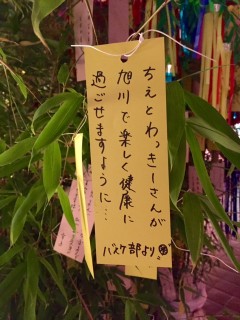 ちえとわっきーさんが
旭川で楽しく健康に
過ごせますように…
バスケ部より